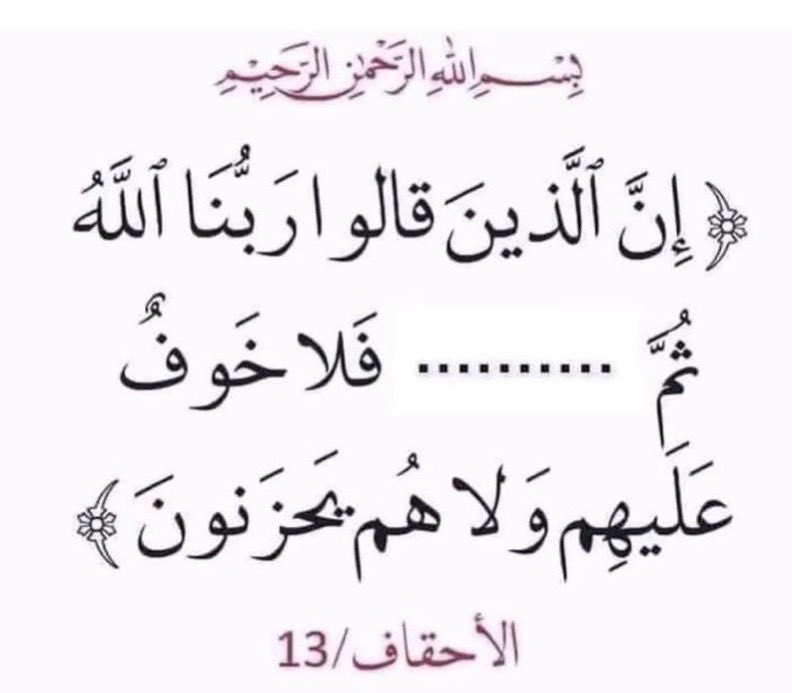 بِسْمِ اللهِ الرَّحْمٰنِ الرَّحِيْمِ
﴿ إِنَّ ٱلَّذينَ قالوا رَبُّنَا ٱللَّهُ
ثُمَّ .......... فَلا خَوفٌ
عَلَيهِم وَلا هُم يَحزَنونَ ﴾
الأحقاف/13